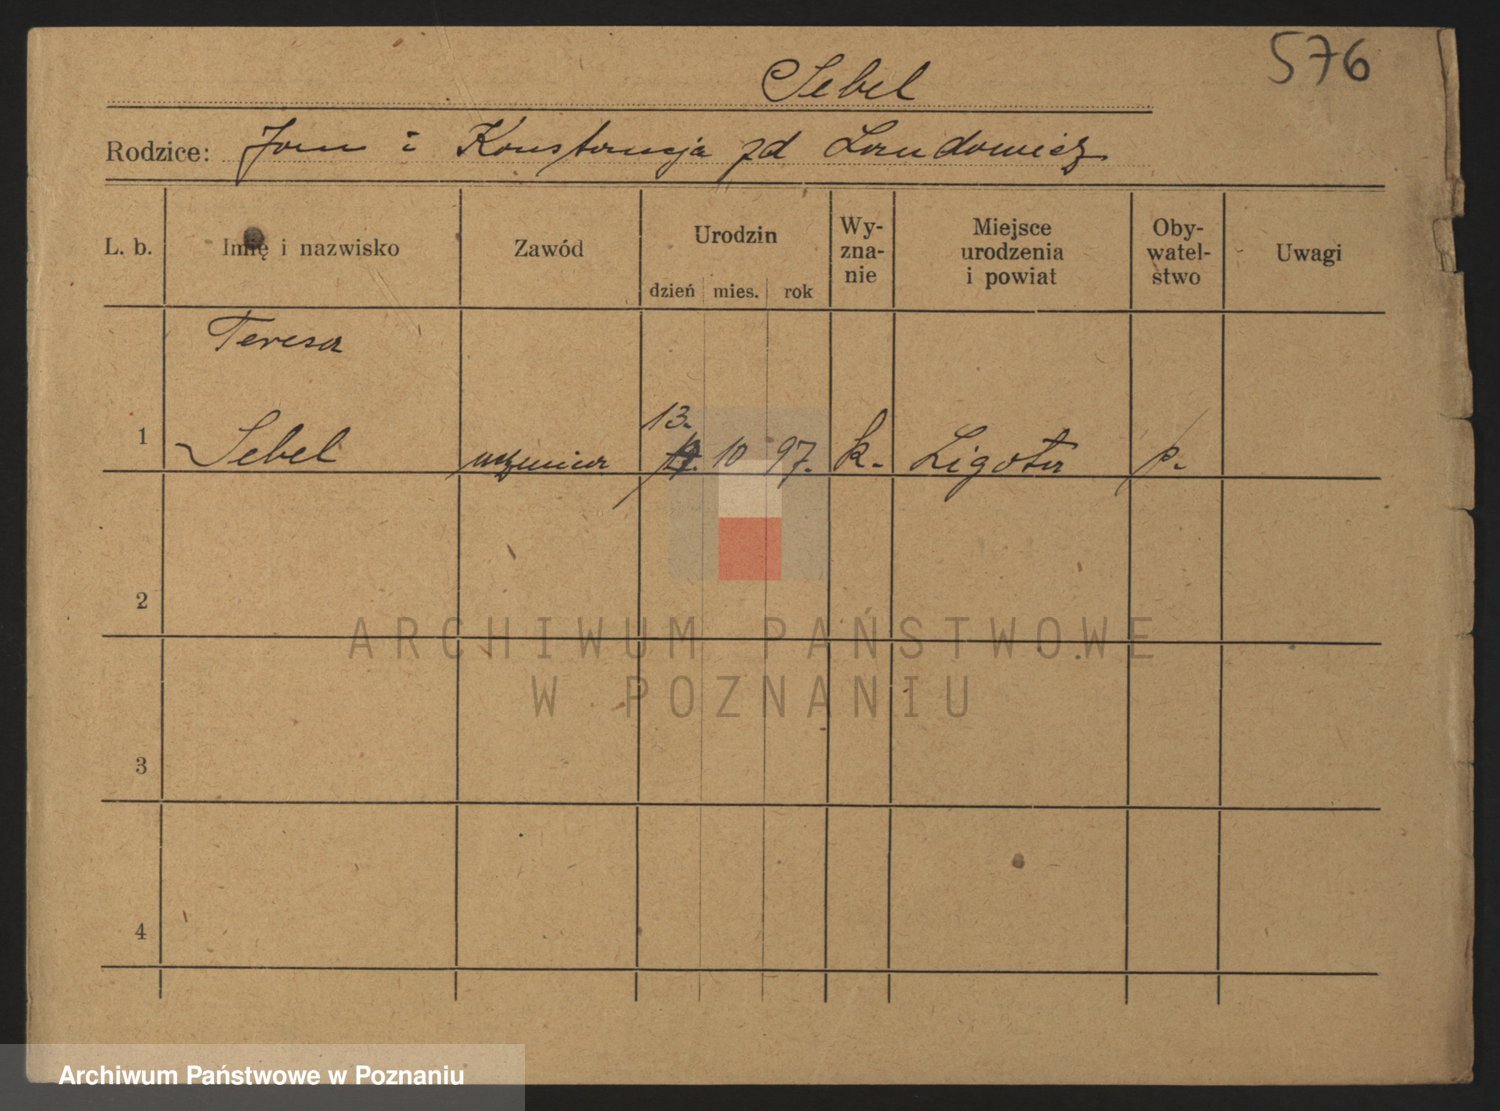 576
Sebel
Rodzice: Jan i Konstancja zd Landowicz
L. b. Imię i nazwisko Zawód Urodzin dzień mies. rok Wy-zna-nie Miejsce urodzenia i powiat Oby-watel-stwo Uwagi
Teresa
13.
1 Sebel uczenica 10 97. k. Ligota p.
2
ARCHIWUM PAŃSTWOWE
W POZNANIU
3
4
Archiwum Państwowe w Poznaniu